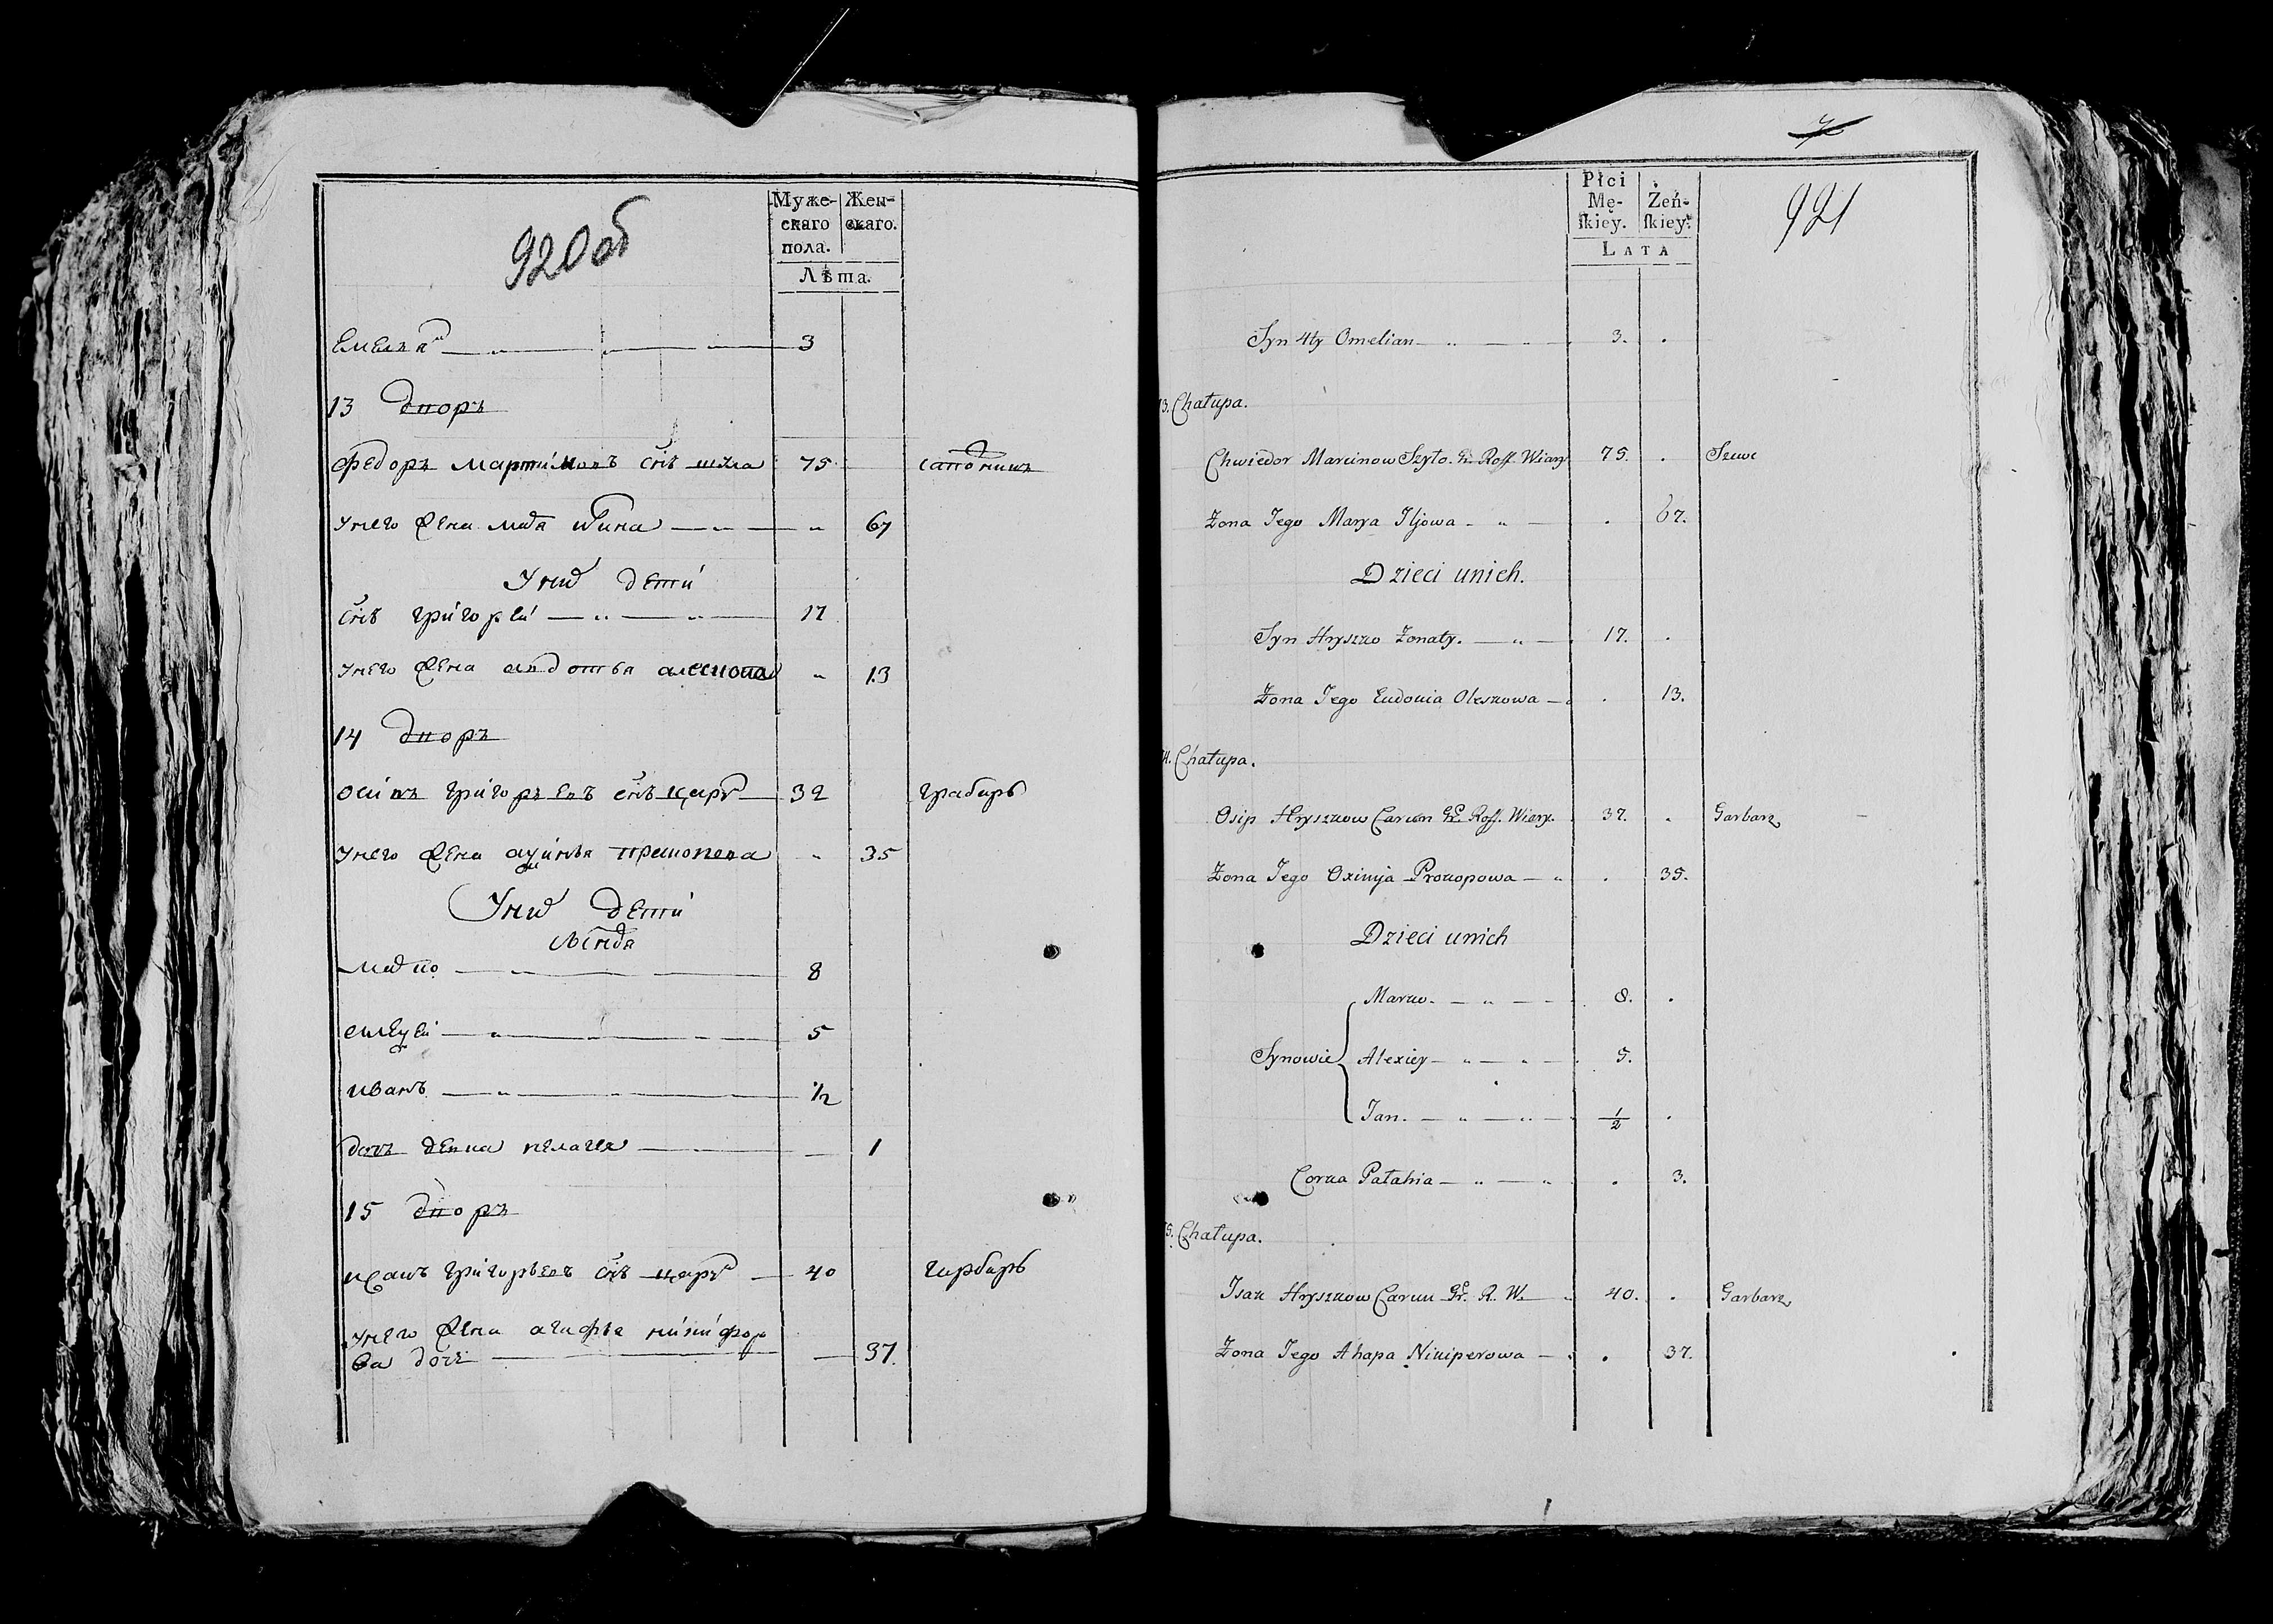 920 об
Муже-
скаго
пола.
Жен-
скаго.
Лѣта.
Емельян 3
13 Дворъ
Федоръ Мартиновъ снъ шила 75 сапожникъ
У него жена Маря Илина " 67
У них дети
снъ григорей 17
У него жена авдотья алескова " 13
14 Дворъ
Осипъ григорьевъ снъ царук 32 грабарь
У него жена аксинья прокопева " 35
У них дети
Марко 8
алексей 5
иванъ 1/2
дочь девка пелагея 1
15 Дворъ
исакъ григорьевъ снъ царук 40 гарбарь
У него жена агафья никифоро
ва дочь 37
7
Płci
Mę-
ſkiey.
Żeń-
ſkiey.
LATA
921
Syn 4ty Omelian 3.
13. Chałupa.
Chwiedor Marcinow Szyło. Gr. Ross. Wiary 75. Szewc
Żona Jego Marya Iljowa 67.
Dzieci unich.
Syn Hryszko Żonaty. 17.
Żona Jego Eudokia Oleskowa 13.
14. Chałupa.
Osip Hryszkow Caruk Gr. Ross. Wiary. 37. Garbarz
Żona Jego Oximija Prokopowa 35.
Dzieci unich
Marko. 8.
Synowie Alexiey 5.
Jan. 1/2
Corka Pałahia 3.
15. Chałupa.
Isak Hryszkow Caruk Gr. R. W. 40. Garbarz
Żona Jego Ahapa Nikiperowa 37.